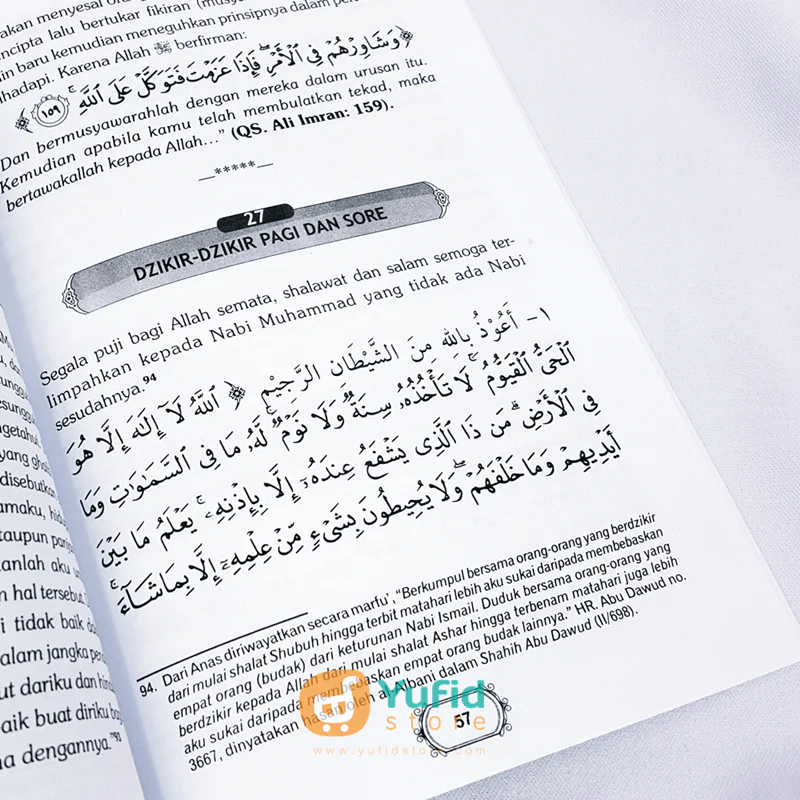 akan menyesal
lalu bertukar fikiran
in baru kemudian meneguhkan prinsipnya dalam
hadapi. Karena Allah ﷻ berfirman:
﴿ وَشَاوِرْهُمْ فِي الْأَمْرِ ۖ فَإِذَا عَزَمْتَ فَتَوَكَّلْ عَلَى اللَّهِ ۚ ١٥٩ ﴾
Dan bermusyawarahlah dengan mereka dalam urusan itu.
Kemudian apabila kamu telah membulatkan tekad, maka
bertawakallah kepada Allah…" (QS. Ali Imran: 159).
—*****—
27
DZIKIR-DZIKIR PAGI DAN SORE
Segala puji bagi Allah semata, shalawat dan salam semoga ter-
limpahkan kepada Nabi Muhammad yang tidak ada Nabi
sesudahnya.94
١- أَعُوْذُ بِاللهِ مِنَ الشَّيْطَانِ الرَّجِيْمِ ﴿ اَللَّهُ لَآ إِلَٰهَ إِلَّا هُوَ
الْحَىُّ الْقَيُّومُ ۚ لَا تَأْخُذُهُۥ سِنَةٌ وَلَا نَوْمٌ ۚ لَّهُۥ مَا فِى السَّمَٰوَٰتِ وَمَا
فِى الْأَرْضِ ۗ مَن ذَا الَّذِى يَشْفَعُ عِندَهُۥٓ إِلَّا بِإِذْنِهِۦ ۚ يَعْلَمُ مَا بَيْنَ
أَيْدِيهِمْ وَمَا خَلْفَهُمْ ۖ وَلَا يُحِيطُونَ بِشَىْءٍ مِّنْ عِلْمِهِۦٓ إِلَّا بِمَا شَآءَ ۚ
94. Dari Anas diriwayatkan secara marfu', "Berkumpul bersama orang-orang yang berdzikir
dari mulai shalat Shubuh hingga terbit matahari lebih aku sukai daripada membebaskan
empat orang (budak) dari keturunan Nabi Ismail. Duduk bersama orang-orang yang
berdzikir kepada Allah dari mulai shalat Ashar hingga terbenam matahari juga lebih
aku sukai daripada membebaskan empat orang budak lainnya." HR. Abu Dawud no.
3667, dinyatakan hasan oleh al-Albani dalam Shahih Abu Dawud (II/698).
57
yang
disebutkan
amaku,
taupun
anlah aku
n hal tersebut
i tidak baik
alam jangka
ut dariku dan
aik buat diriku
a dengannya."93
Yufid
store
www.yufidstore.com